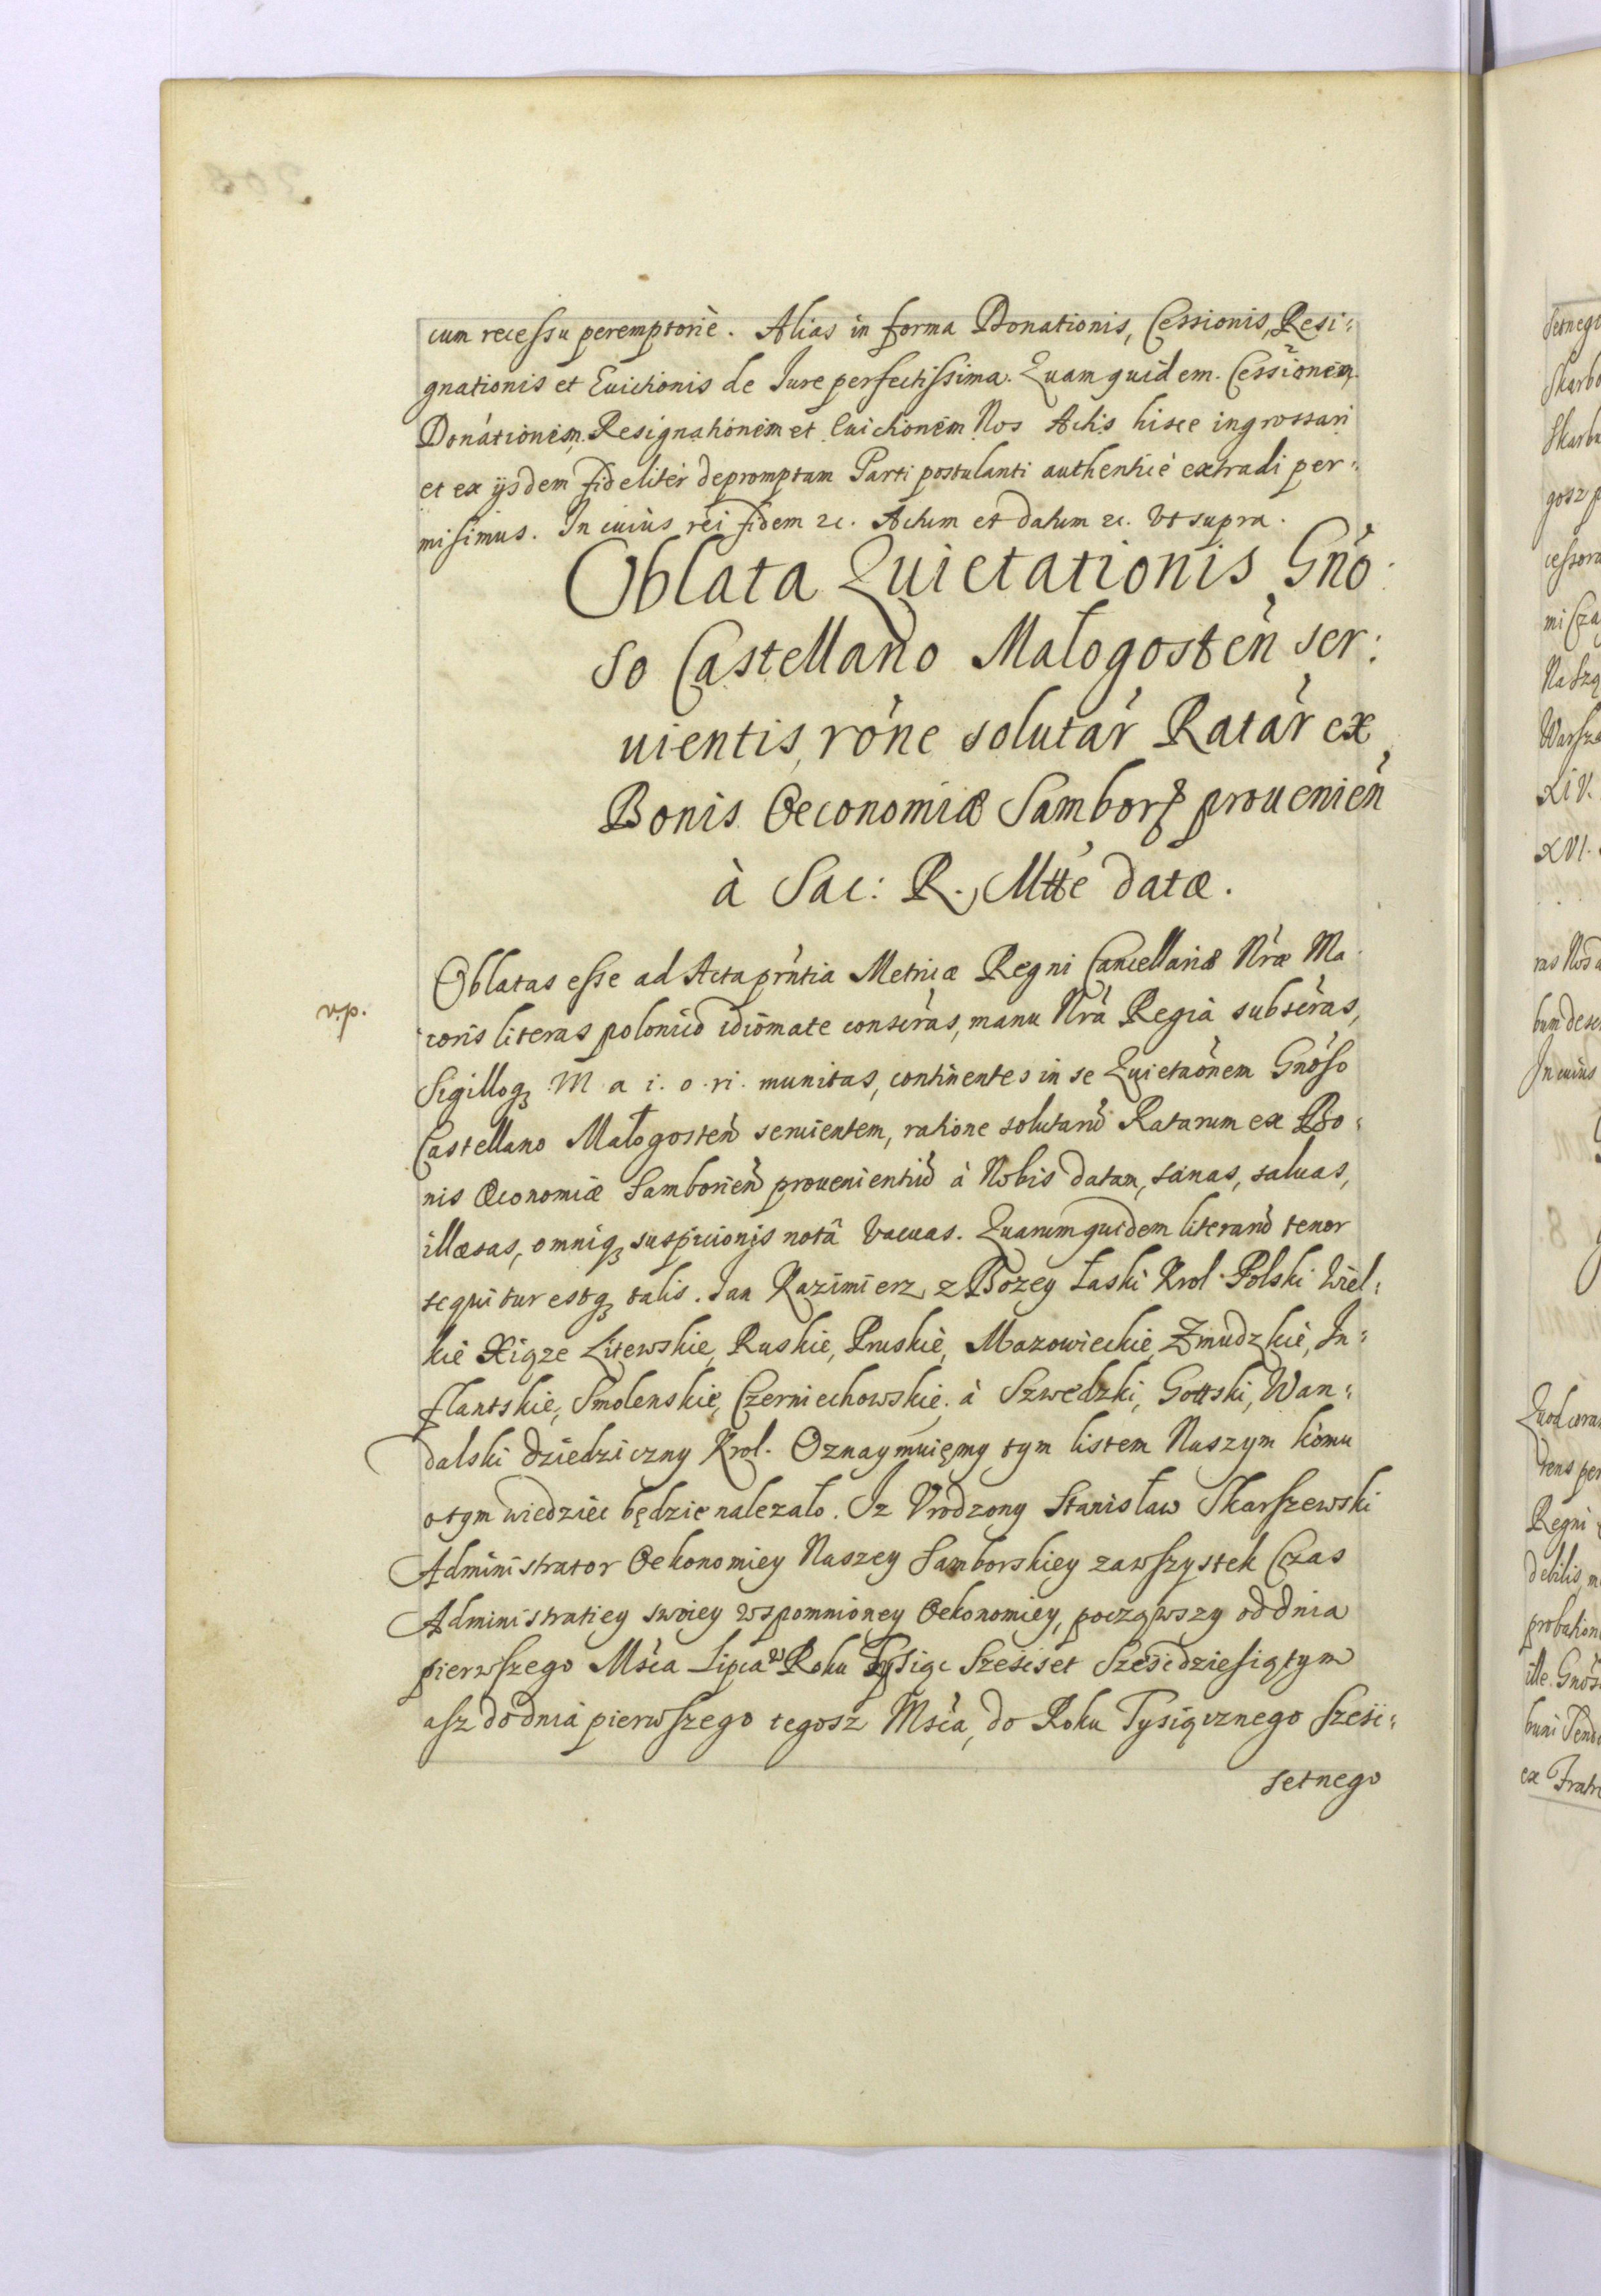 cum recessu peremptoriè. Alias in forma Donationis, Cessionis, Resi=
gnationis et Euictionis de Iure perfectissima. Quam quidem. Cessionem
Donationem, Resignationem et Euictionem Nos Actis hisce ingrossari
et ex ijsdem fideliter depromptam Parti postulanti authenticè extradi per=
misimus. In cuius rei fidem &c. Actum et datum &c. Vt supra.
Oblata Quietationis Gnõ:
so Castellano Małogosteñ ser:
uientis, rõne solutar̃ Ratar̃ ex
Bonis Oeconomiæ Sambor: prouenień
à Sac: R. Mtte datæ.
Oblatas esse ad Acta prńtia Metricæ Regni Cancellariæ Nræ Ma
v.p.
ioris literas polonico idiomate conscr̃as, manu Nrã Regia subscr̃as,
Sigilloq3 M a i. o. ri. munitas, continentes in se Quietaõnem Gnõso
Castellano Małogosteñ seruientem, ratione solutarũ Ratarum ex Bo=
nis Œconomiæ Samborień prouenientiũ à Nobis datam, sanas, saluas,
illæsas, omniq3 suspicionis notâ vacuas. Quarum quidem literarũ tenor
sequitur estq3 talis. Jan Kazimierz z Bozey Łaski Krol Polski Wiel=
kie Xiąze Litewskie, Ruskie, Pruskie, Mazowieckie, Zmudzkie, In=
flantskie, Smolenskie, Czerniechowskie. à Szwedzki, Gottski, Wan=
dalski dziedziczny Krol. Oznaymuięmy tym listem Naszym komu
o tym wiedziec będzie nalezało. Iz Vrodzony Stanisław Skarszewski
Administrator Oekonomiey Naszey Samborskiey zawszystek Czas
Administratiey swoiey wspomnioney Oekonomiey, począwszy od dnia
pierwszego Mśca Lipca w Roku Tysiąc Szescset Szescdziesiątym
asz do dnia pierwszego tegosz Mśca, do Roku Tysiącznego Szesc=
setnego